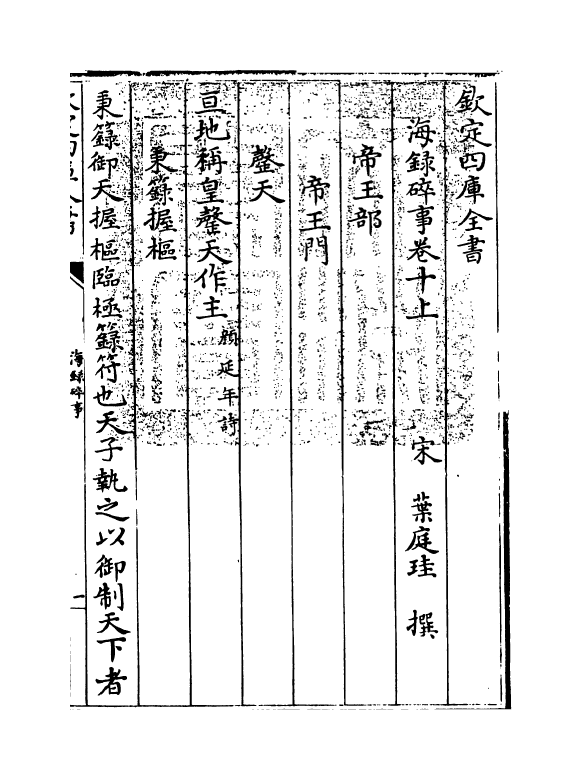 欽定四庫全書
海録碎事卷十上　宋　葉庭珪　撰
帝王部
帝王門
罄天
亘地稱皇罄天作主顔延年詩
秉籙握樞
秉籙御天握樞臨極籙符也天子執之以御制天下者
海録碎事
一